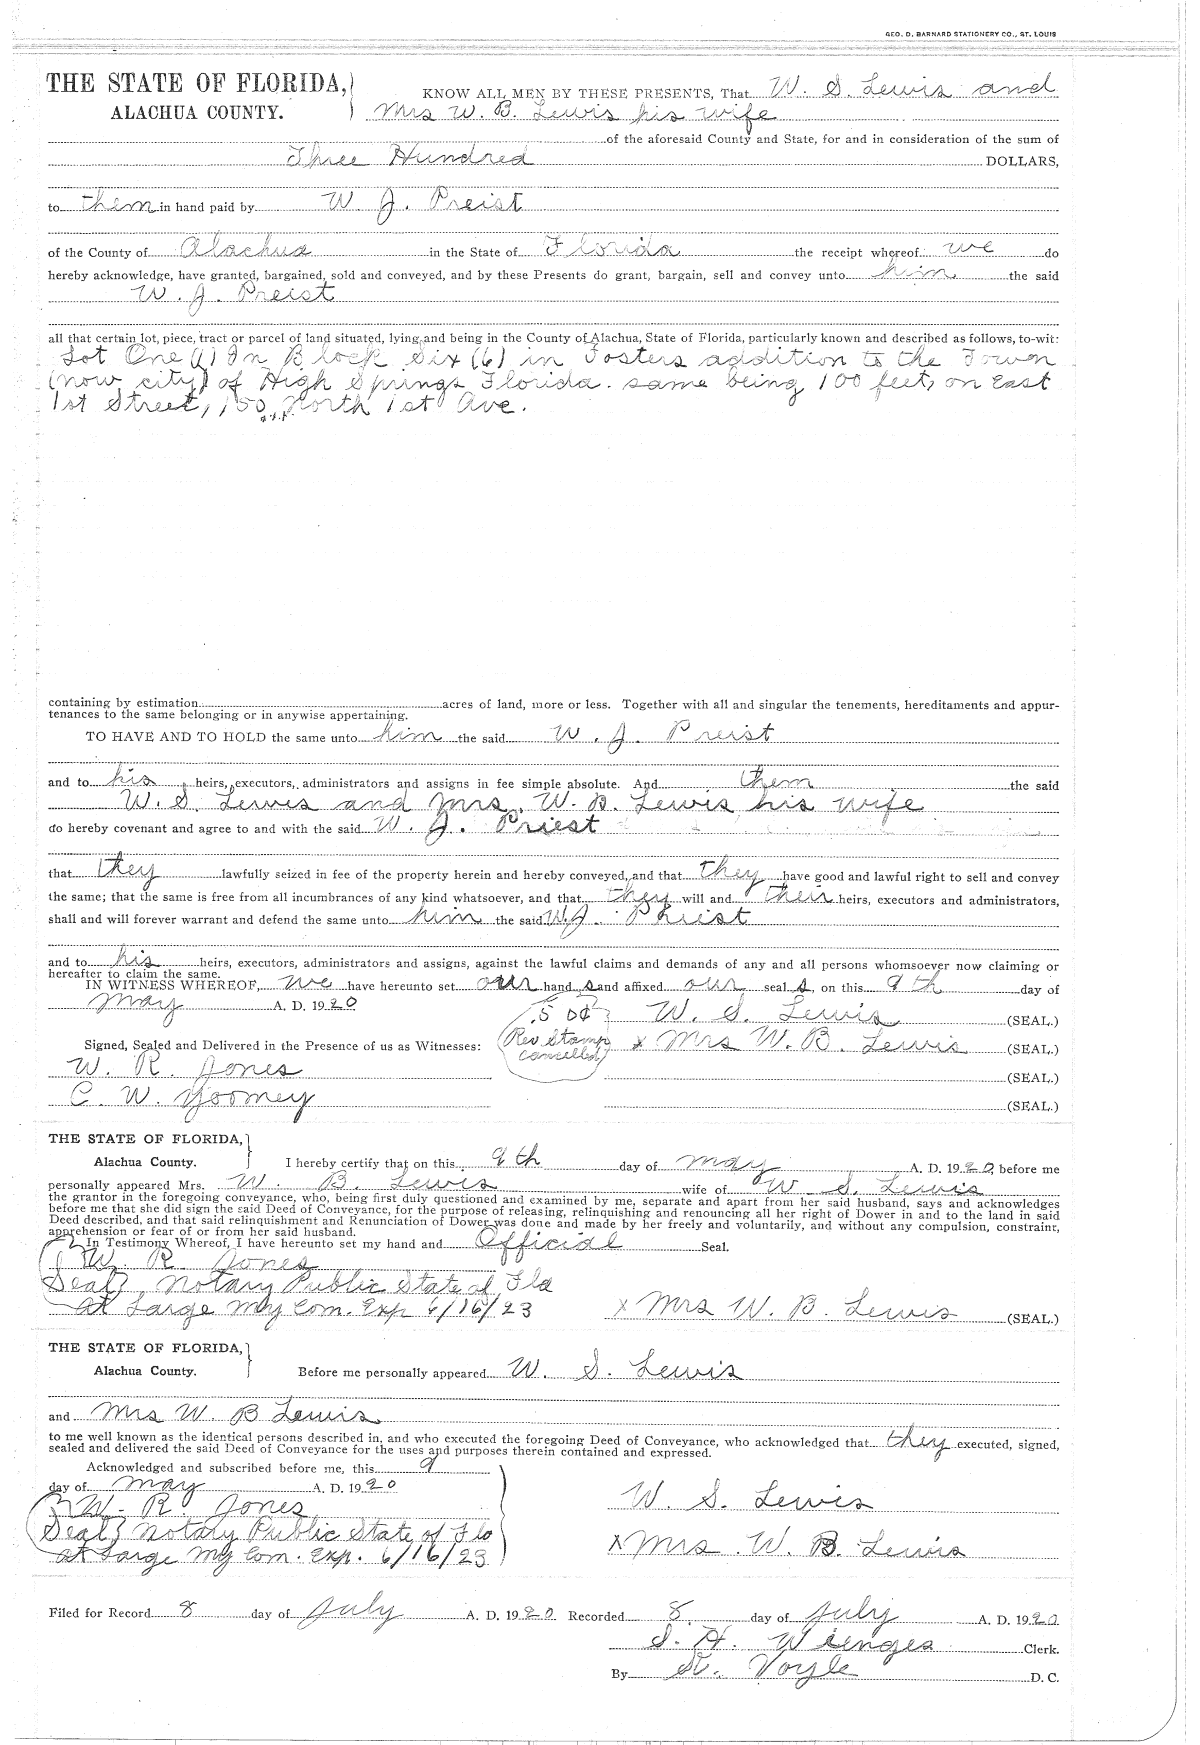 GEO. D. BARNARD STATIONERY CO., ST. LOUIS
THE STATE OF FLORIDA,
ALACHUA COUNTY.
KNOW ALL MEN BY THESE PRESENTS, That W. S. Lewis and
Mrs W. B. Lewis his wife
of the aforesaid County and State, for and in consideration of the sum of
Three Hundred DOLLARS,
to them in hand paid by W. J. Preist
of the County of Alachua in the State of Florida the receipt whereof we do
hereby acknowledge, have granted, bargained, sold and conveyed, and by these Presents do grant, bargain, sell and convey unto him the said
W. J. Preist
all that certain lot, piece, tract or parcel of land situated, lying and being in the County of Alachua, State of Florida, particularly known and described as follows, to-wit:
Lot One (1) In Block Six (6) in Fosters addition to the Towen
(now city) of High Springs Florida. same being 100 feet, on East
1st Street, 150 North 1st Ave.
containing by estimation acres of land, more or less. Together with all and singular the tenements, hereditaments and appur-
tenances to the same belonging or in anywise appertaining.
TO HAVE AND TO HOLD the same unto him the said W. J. Preist
and to his heirs, executors, administrators and assigns in fee simple absolute. And them the said
W. S. Lewis and Mrs. W. B. Lewis his wife
do hereby covenant and agree to and with the said W. J. Priest
that they lawfully seized in fee of the property herein and hereby conveyed, and that they have good and lawful right to sell and convey
the same; that the same is free from all incumbrances of any kind whatsoever, and that they will and their heirs, executors and administrators,
shall and will forever warrant and defend the same unto him the said W. J. Priest
and to his heirs, executors, administrators and assigns, against the lawful claims and demands of any and all persons whomsoever now claiming or
hereafter to claim the same.
IN WITNESS WHEREOF, we have hereunto set our hand s and affixed our seal s, on this 9th day of
May A. D. 1920
.50¢ W. S. Lewis (SEAL.)
Signed, Sealed and Delivered in the Presence of us as Witnesses: Rev Stamp cancelled x Mrs W. B. Lewis (SEAL.)
W. R. Jones (SEAL.)
C. W. Yoomey (SEAL.)
THE STATE OF FLORIDA,
Alachua County. I hereby certify that on this 9th day of May A. D. 1920 before me
personally appeared Mrs. W. B. Lewis wife of W S. Lewis
the grantor in the foregoing conveyance, who, being first duly questioned and examined by me, separate and apart from her said husband, says and acknowledges
before me that she did sign the said Deed of Conveyance, for the purpose of releasing, relinquishing and renouncing all her right of Dower in and to the land in said
Deed described, and that said relinquishment and Renunciation of Dower was done and made by her freely and voluntarily, and without any compulsion, constraint,
apprehension or fear of or from her said husband.
In Testimony Whereof, I have hereunto set my hand and Official Seal.
W. R. Jones
Seal} Notary Public State of Fla
at Large My Com. Exp. 6/16/23 x Mrs W. B. Lewis (SEAL.)
THE STATE OF FLORIDA,
Alachua County. Before me personally appeared W. S. Lewis
and Mrs W. B Lewis
to me well known as the identical persons described in, and who executed the foregoing Deed of Conveyance, who acknowledged that they executed, signed,
sealed and delivered the said Deed of Conveyance for the uses and purposes therein contained and expressed.
Acknowledged and subscribed before me, this 9
day of May A. D. 1920
W. R. Jones W. S. Lewis
Seal} Notary Public State of Fla
at Large My Com. Exp. 6/16/23 x Mrs. W. B. Lewis
Filed for Record 8 day of July A. D. 1920 Recorded 8 day of July A. D. 1920
S. H. Wienges Clerk.
By St. Voyle D. C.